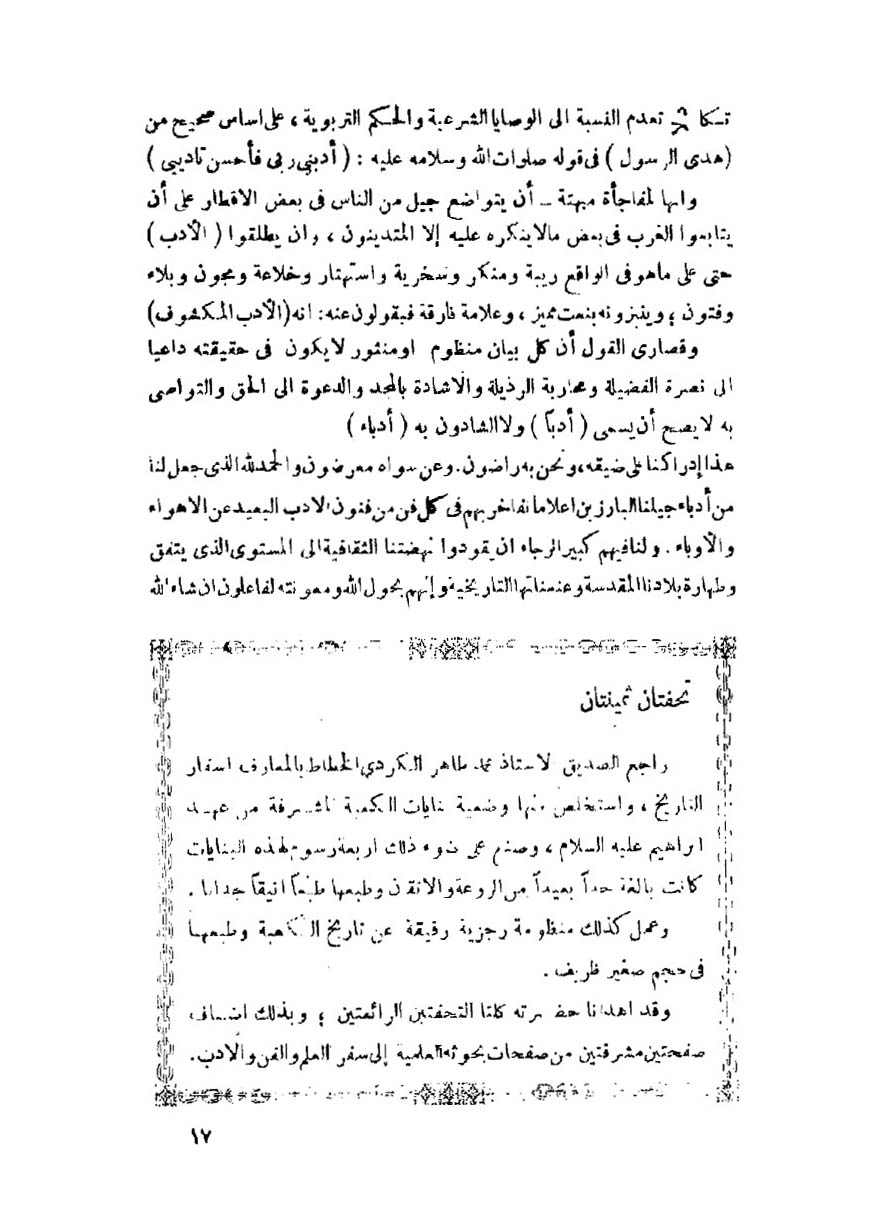 تكاد تعدم النسبة الى الوصايا الشرعية والحكم التربوية ، على اساس صحيح من
(هدى الرسول ) فى قوله صلوات الله وسلامه عليه : ( أدبنى ربى فأحسن تاديبى )
وانها لمفاجأة مبهتة ــ أن يتواضع جيل من الناس فى بعض الاقطار على أن
يتابعوا الغرب فى بعض مالا ينكره عليه إلا المتدينون ، وان يطلقوا ( الأدب )
حتى على ماهو فى الواقع ريبة ومنكر وسخرية واستهتار وخلاعة ومجون وبلاء
وفتون ؛ وينبزونه بنعت مميز ، وعلامة فارقة فيقولون عنه : انه (الأدب المكشوف)
وقصارى القول أن كل بيان منظوم اومنثور لا يكون فى حقيقته داعيا
الى نصرة الفضيلة ومحاربة الرذيلة والاشادة بالمجد والدعوة الى الحق والتواصى
به لا يصح أن يسمى ( أدباً ) ولا الشادون به ( أدباء )
هذا إدراكنا على ضيقه، ونحن به راضون . وعن سواه معرضون والحمد لله الذى جعل لنا
من أدباء جيلنا البارزين اعلاما نفاخر بهم فى كل فن من فنون الادب البعيد عن الاهواء
والأوباء . ولنا فيهم كبير الرجاء ان يقودوا نهضتنا الثقافية الى المستوى الذى يتفق
وطهارة بلادنا المقدسة وعنعناتها التاريخية وإنهم بحول الله ومعونته لفاعلون ان شاء الله
تحفتان ثمينتان
راجع الصديق الاستاذ محمد طاهر الكردي الخطاط بالمعارف اسفار
التاريخ ، واستخلص منها وضعية بنايات الكعبة المشرفة من عهد
ابراهيم عليه السلام ، وصنع على ضوء ذلك اربعة رسوم لهذه البنايات
كانت بالغة حداً بعيداً من الروعة والاتقان وطبعها طبعاً انيقاً جذابا .
وعمل كذلك منظومة رجزية رقيقة عن تاريخ الكعبة وطبعها
فى حجم صغير ظريف .
وقد اهدانا حضرته كلتا التحفتين الرائعتين ؛ وبذلك اضاف
صفحتين مشرقتين من صفحات بحوثه العلمية إلى سفر العلم والفن والادب.
١٧